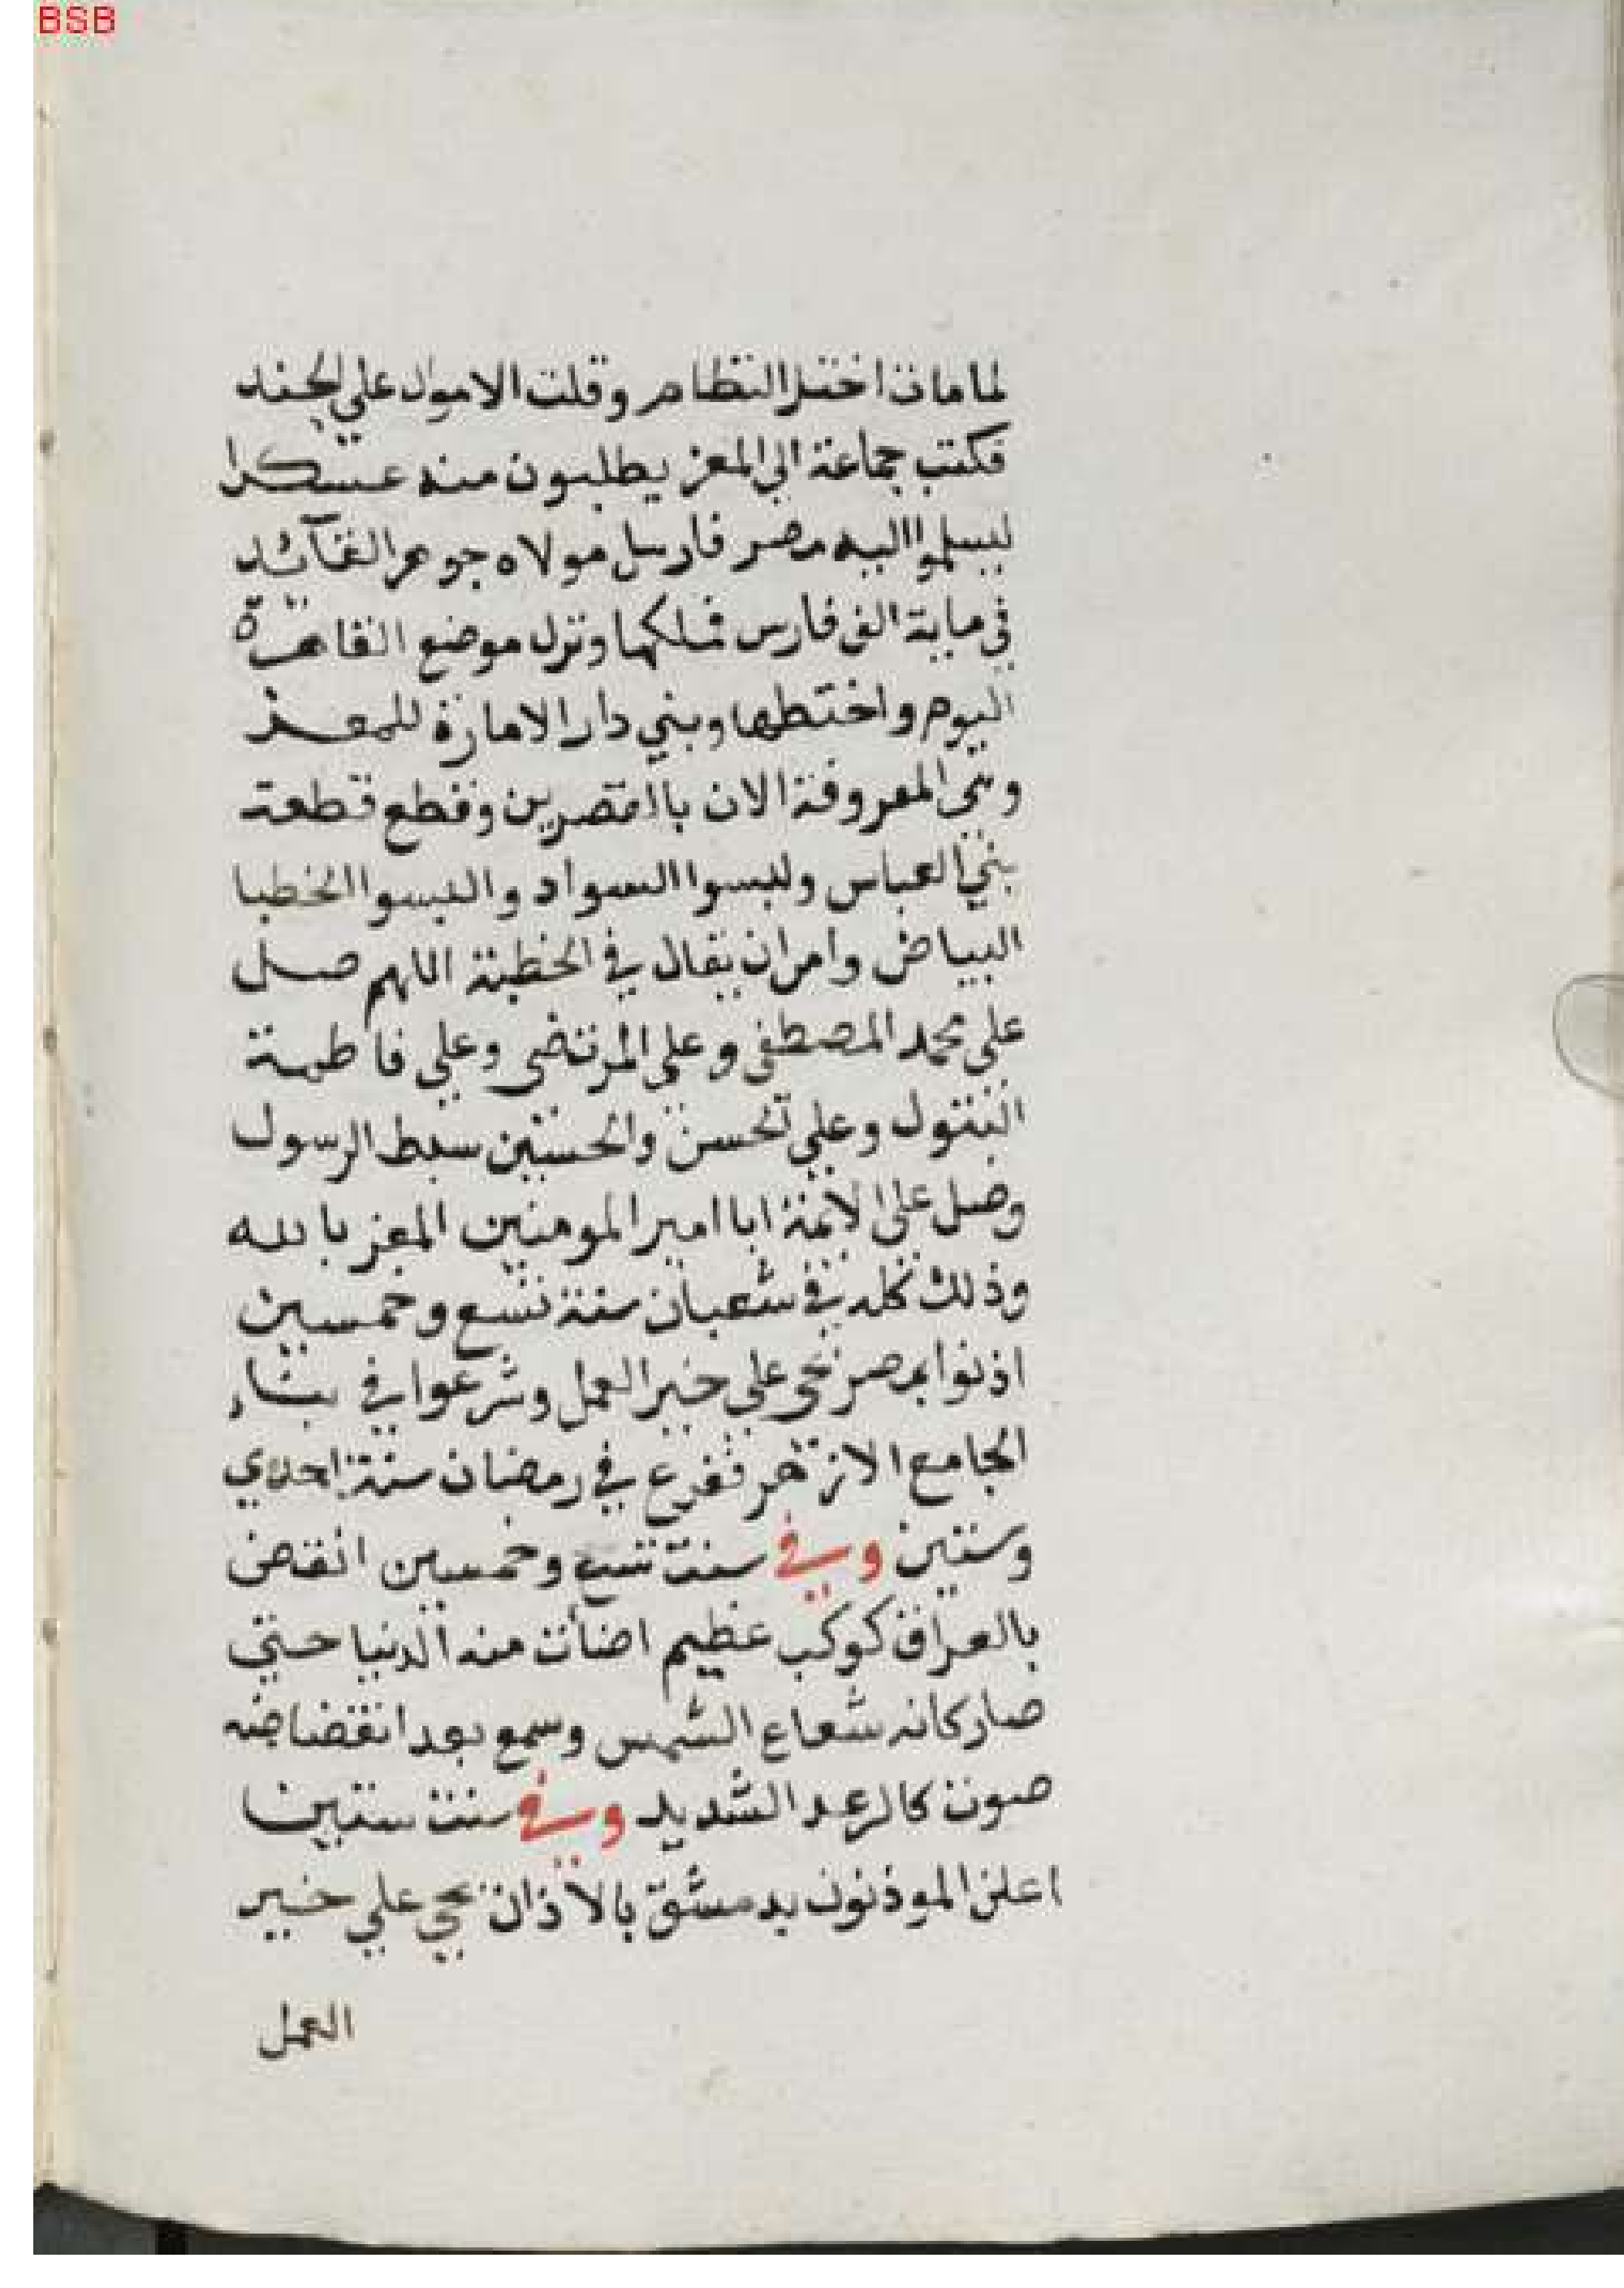 BSB
لما مات اختل النظام وقلت الاموال على الجند
فكتب جماعة الي المعز يطلبون منه عسكرا
ليسلموا اليه مصر فارسل مولاه جوهر القآئد
في ماية الف فارس فملكها ونزل موضع القاهرة
اليوم واختطها وبني دار الامارة للمعز
وهي المعروفة الان بالقصرين وقطع قطعة
بني العباس ولبسوا السواد والبسوا الخطبا
البياض وامر ان يقال في الخطبة اللهم صل
علي محمد المصطفي وعلي المرتضي وعلي فاطمة
البتول وعلي الحسن والحسين سبط الرسول
وصل علي الايمة ابا امير المومنين المعز بالله
وذلك كله في شعبان سنة تسع وخمسين
اذنوا بمصر بحي علي خير العمل وشرعوا في بناء
الجامع الازهر ففرغ في رمضان سنة احدي
وستين وفي سنت تسع وخمسين انقض
بالعراق كوكب عظيم اضأت منه الدنيا حتي
صار كانه شعاع الشمس وسمع بعد انقضاضه
صوت كالرعد الشديد وفي سنت ستين
اعلن الموذنون بدمشق بالاذان بحي علي خير
العمل